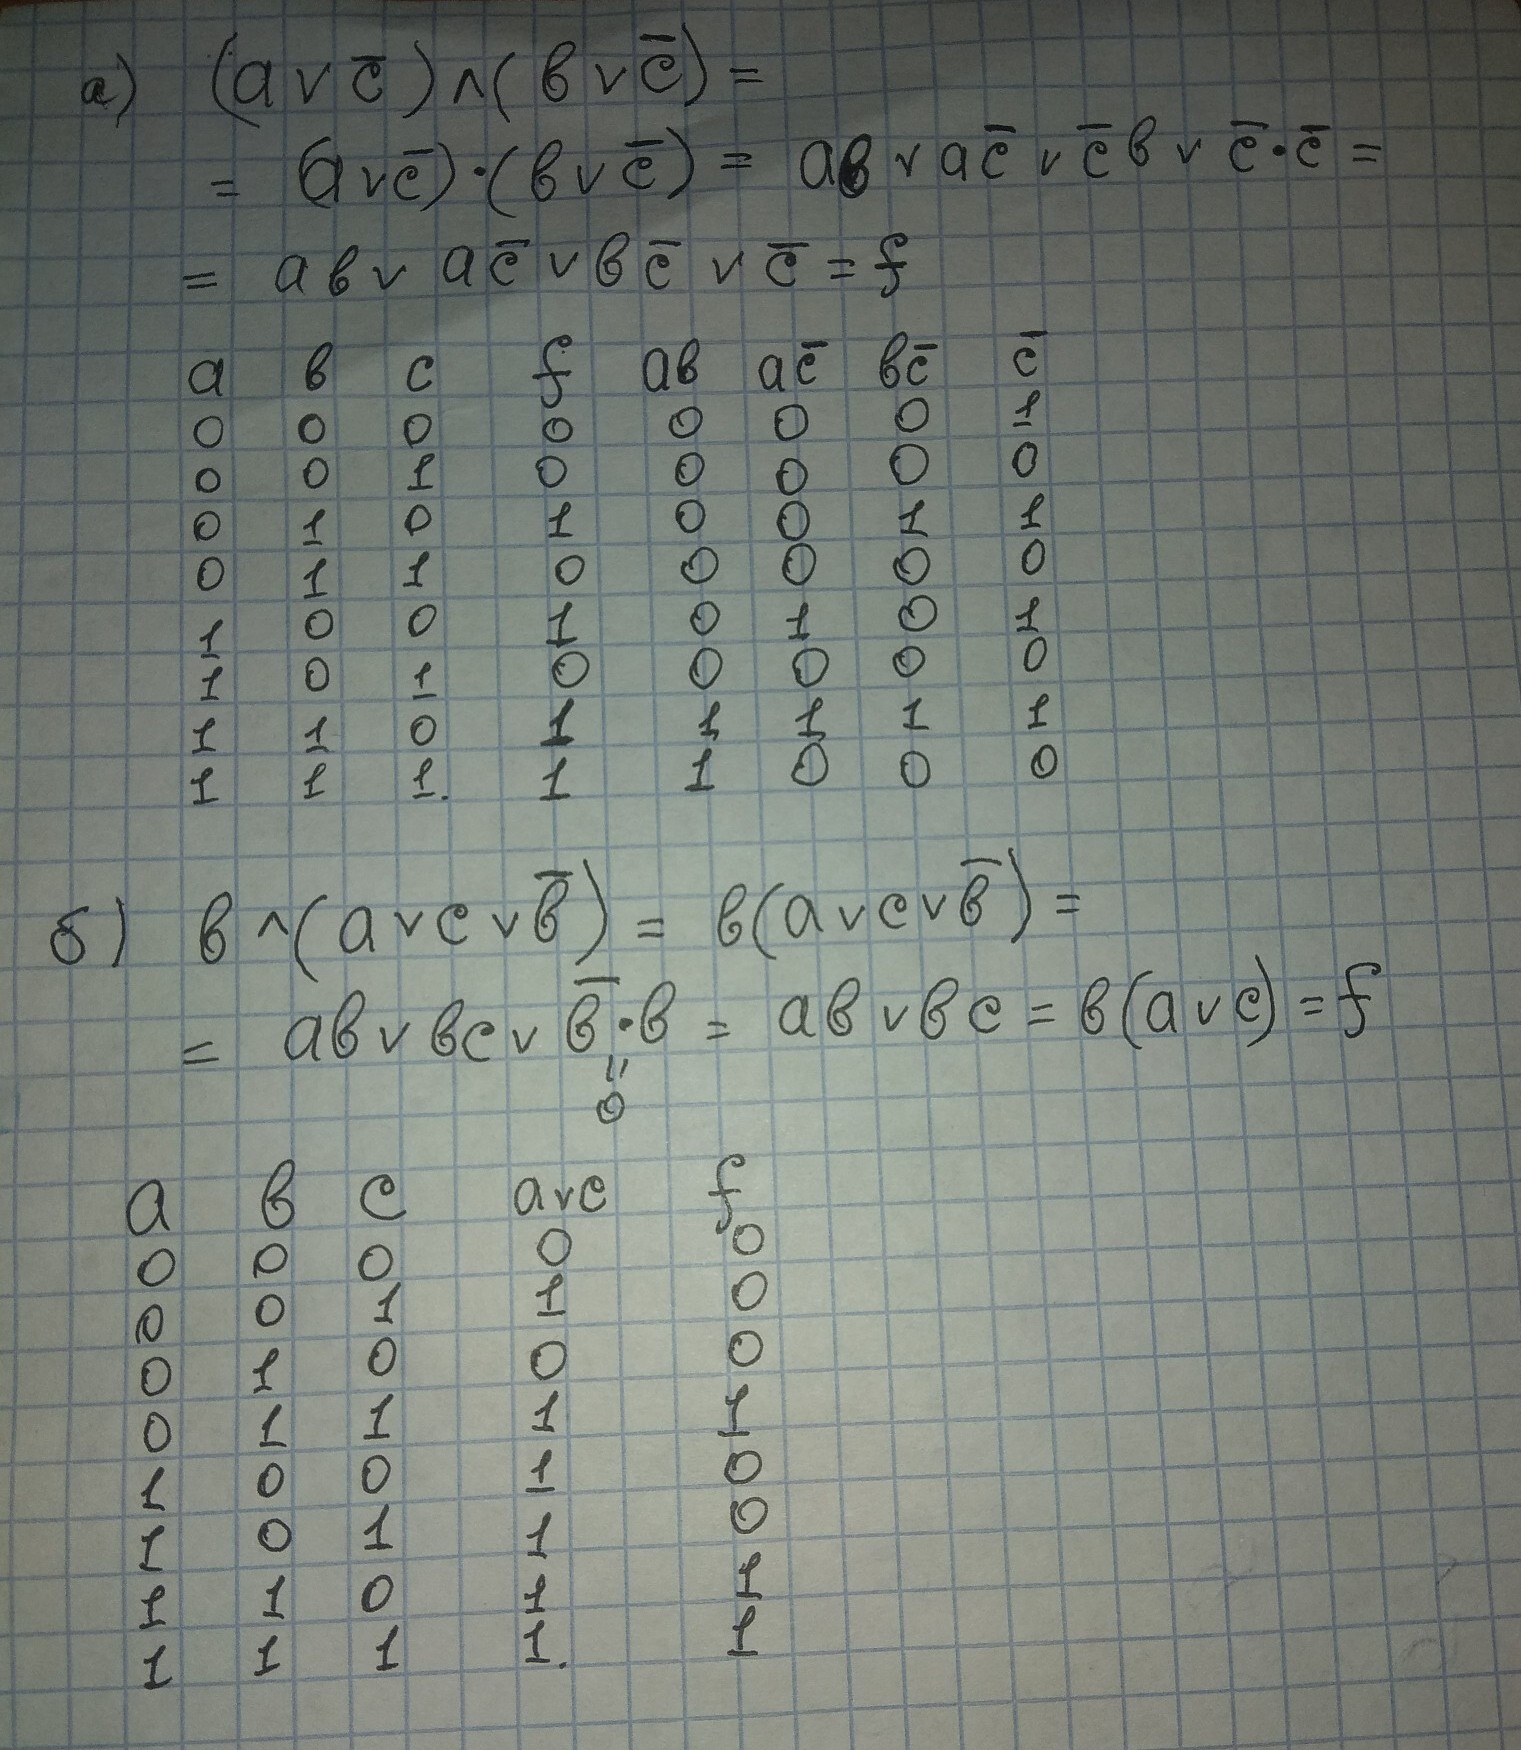 а) (a ∨ c̄) ∧ (в ∨ c̄) =
= (a ∨ c̄)·(в ∨ c̄) = aв ∨ ac̄ ∨ c̄в ∨ c̄·c̄ =
= aв ∨ ac̄ ∨ вc̄ ∨ c̄ = f
a в c f aв ac̄ вc̄ c̄
0 0 0 0 0 0 0 1
0 0 1 0 0 0 0 0
0 1 0 1 0 0 1 1
0 1 1 0 0 0 0 0
1 0 0 1 0 1 0 1
1 0 1 0 0 0 0 0
1 1 0 1 1 1 1 1
1 1 1. 1 1 0 0 0
б) в ∧ (a ∨ c ∨ в̄) = в(a ∨ c ∨ в̄) =
= aв ∨ вc ∨ в̄·в = aв ∨ вc = в(a ∨ c) = f
"
0
a в c a∨c f
0 0 0 0 0
0 0 1 1 0
0 1 0 0 0
0 1 1 1 1
1 0 0 1 0
1 0 1 1 0
1 1 0 1 1
1 1 1 1. 1